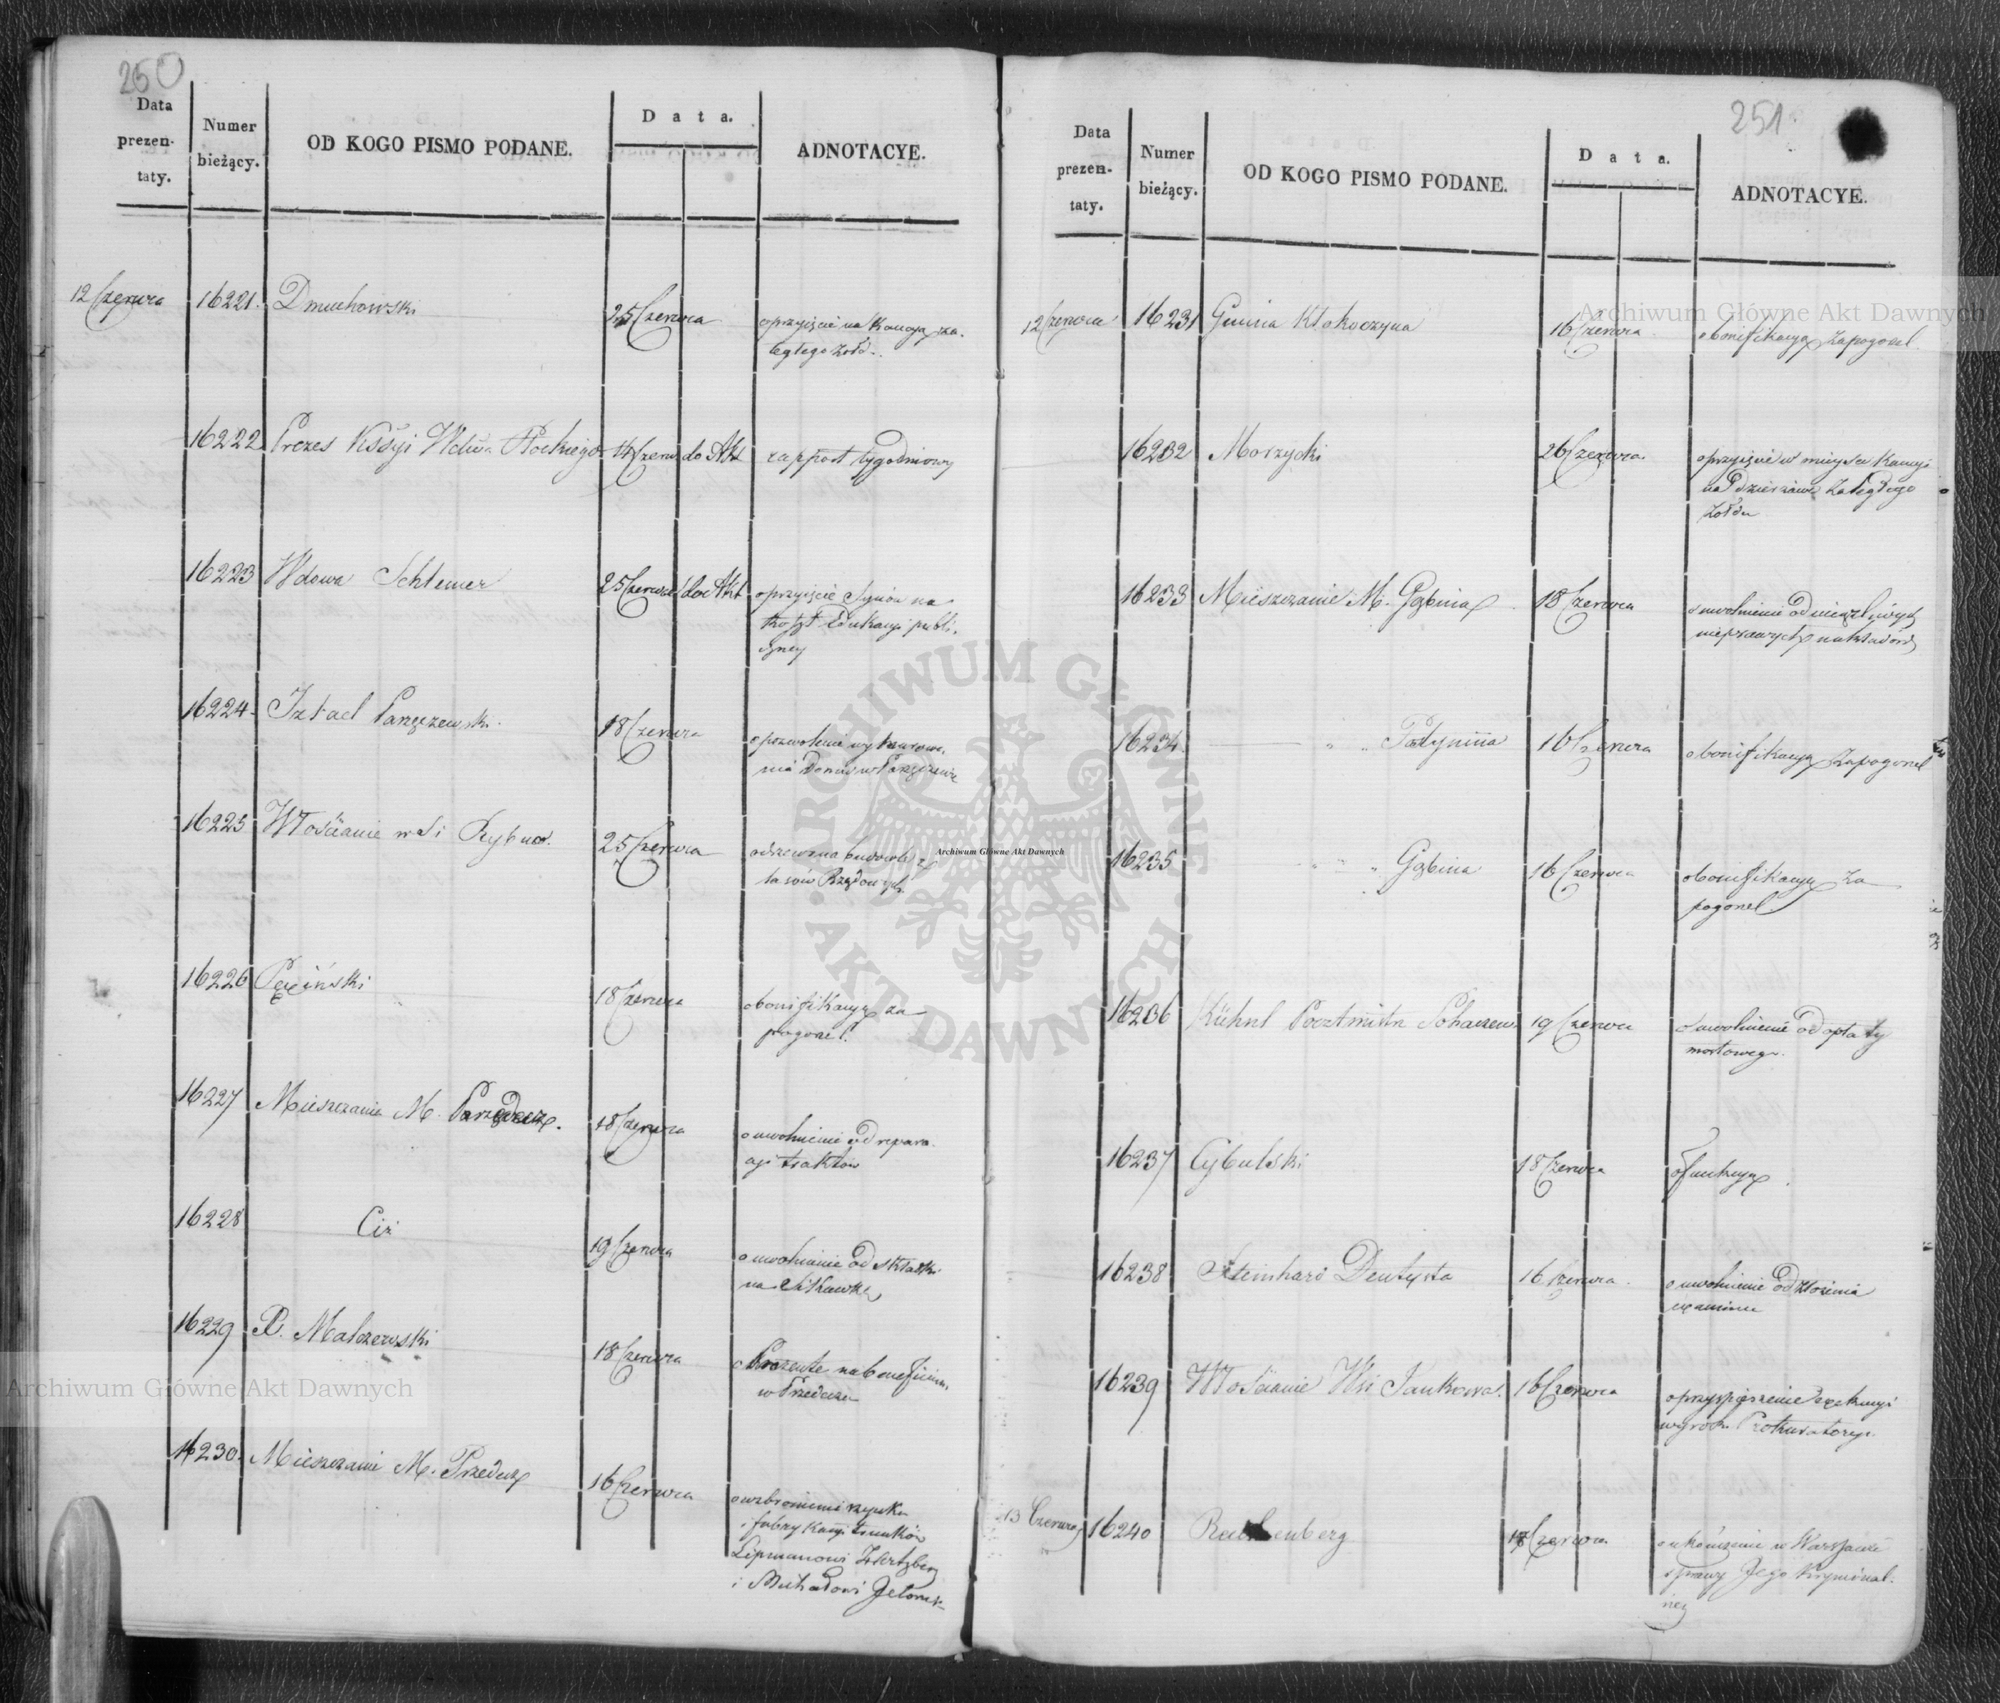 250
Data
prezen-
taty.
Numer
bieżący.
OD KOGO PISMO PODANE.
Data.
ADNOTACYE.
12 Czerwca 16221. Dmuchowski 25 Czerwca o przyjęcie na Kaucyą za-
ległego żołd..
16222 Prezes Kssyi Wdwa Płockiego 14 Czerw. do Akt rapport tygodniowy
16223 Wdowa Schlemer 25 Czerwca do Akt o przyjęcie Synów na
koszt Edukacyi publi-
czney
16224 Izrael Paręczewski 18 Czerwca o pozwolenie wymurowa-
nia Domu w Parzęczewie
16225 Włościanie wsi Rybno. 25 Czerwca o drzewo na budowle z
lasów Rządowych
16226 18 Czerwca o bonifikacyą za
pogorzel.
16227 Mieszczanie M. 18 Czerwca o uwolnienie od repara-
cyi traktów
16228 Ciż 19 Czerwca o uwolnienie od składki
na Sikawkę
16229 X. Malczewski 18 Czerwca o Prezentę na beneficium
w Przedeczu
16230. Mieszczanie M. Przedecz 16 Czerwca o wzbronienie szynku
i fabrykacyi trunków
Lipmanowi Hertzberg
i Michałowi
251
Data
prezen-
taty.
Numer
bieżący.
OD KOGO PISMO PODANE.
Data.
ADNOTACYE.
12 Czerwca 16231 Gmina Kłokoczyna 16 Czerwca o bonifikacyą za pogorzel.
16232 Morzycki 26 Czerwca. o przyjęcie w miejsce Kaucyi
na Dzierżawę zaległego
żołdu
16233 Mieszczanie M. Gąbina 18 Czerwca o uwolnienie od
16234. — „ „ 16 Czerwca o bonifikacyą za pogorzel
16235 „ „ „ Gąbina 16 Czerwca o bonifikacyą za
pogorzel
16236 Kühnl Pocztmistr Sochaczew. 19 Czerwca o uwolnienie od opłaty
mostowego.
16237 Cybulski 18 Czerwca o funkcyą.
16238 Steinhard Dentysta 16 Czerwca. o uwolnienie od złożenia
examinu
16239 Włościanie Wsi Jankowa. 16 Czerwca o przyspieszenie exekucyi
wyroku Prokuratoryi
13 Czerwca 16240 18 Czerwca o ukończenie w Warszawie
sprawy Jego Kryminal-
ney
Archiwum Główne Akt Dawnych
Archiwum Główne Akt Dawnych
Archiwum Główne Akt Dawnych
ARCHIWUM GŁÓWNE
AKT DAWNYCH